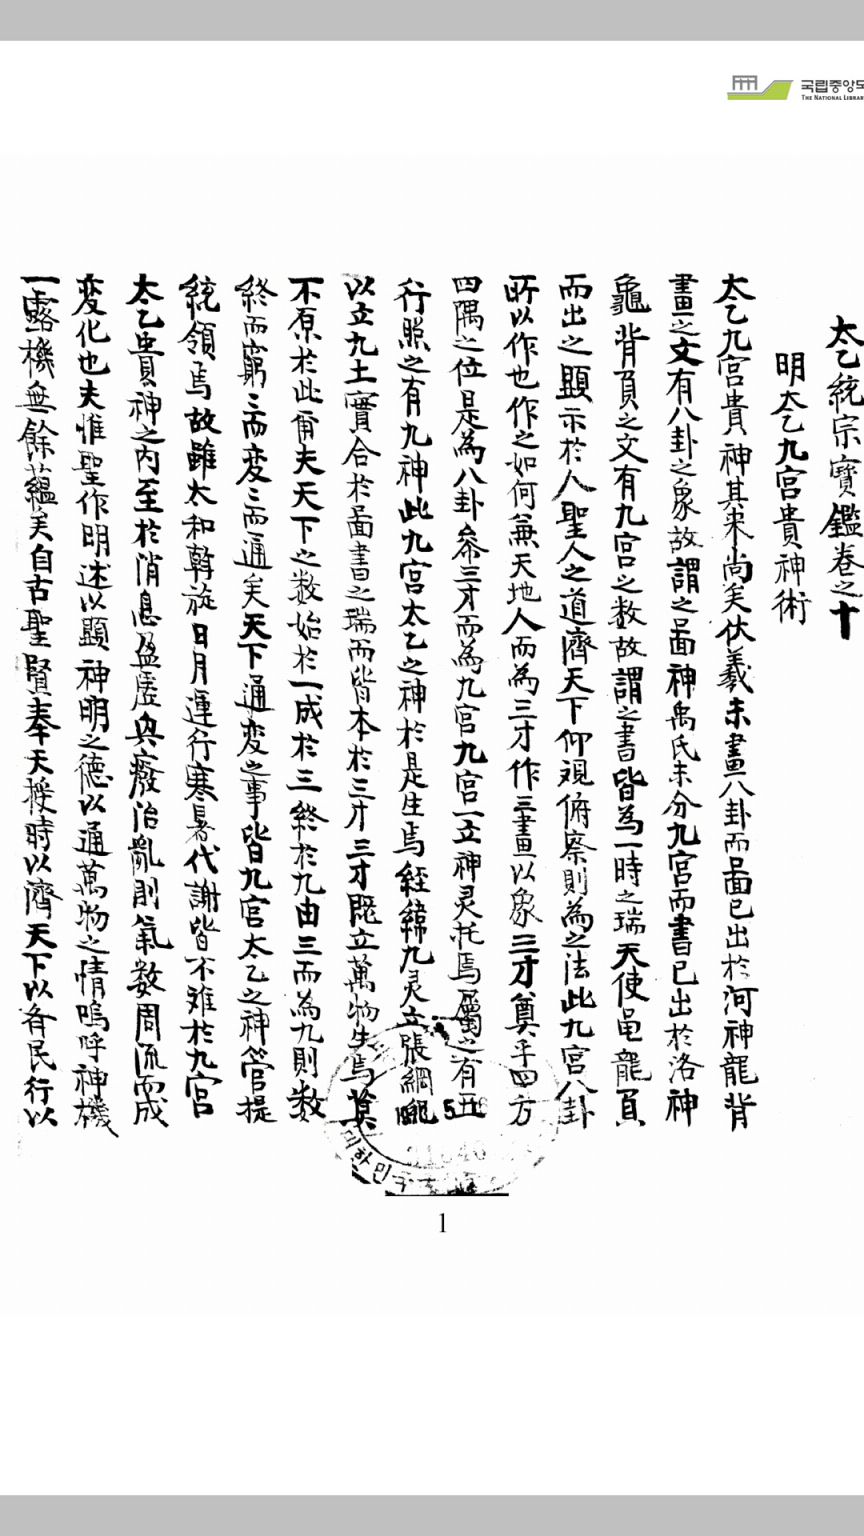 국립중앙도
THE NATIONAL LIBRAR
太乙統宗寶鑑卷之十
明太乙九宮貴神術
太乙九宮貴神其来尚矣伏羲未畫八卦而啚已出於河神龍背
畫之文有八卦之象故謂之啚神禹氏未分九宮而書已出於洛神
龜背負之文有九宮之数故謂之書皆為一時之瑞天使黾龍負
而出之顕示於人聖人之道濟天下仰覌俯察則為之法此九宮八卦
所以作也作之如何兼天地人而為三才作三畫以象三才奠乎四方
四隅之位是為八卦叅三才而為九宮九宮一立神灵托焉屬之有五
行照之有九神此九宮太乙之神於是生焉経緯九灵立張綱
以立九土實合於啚書之瑞而皆本於三才三才既立萬物生焉莫
不原於此甭夫天下之数始於一成於三終於九由三而為九則数
終而窮〻而変〻而通矣天下通変之事皆九官太乙之神管提
統領焉故雖太和斡旋日月運行寒暑代謝皆不难於九宮
太乙貴神之内至於消息盈虚與癈治亂則氣数周流而成
変化也夫惟聖作明述以顕神明之德以通萬物之情嗚呼神機
一露機無餘蘊矣自古聖賢奉天授時以濟天下以斉民行以
1